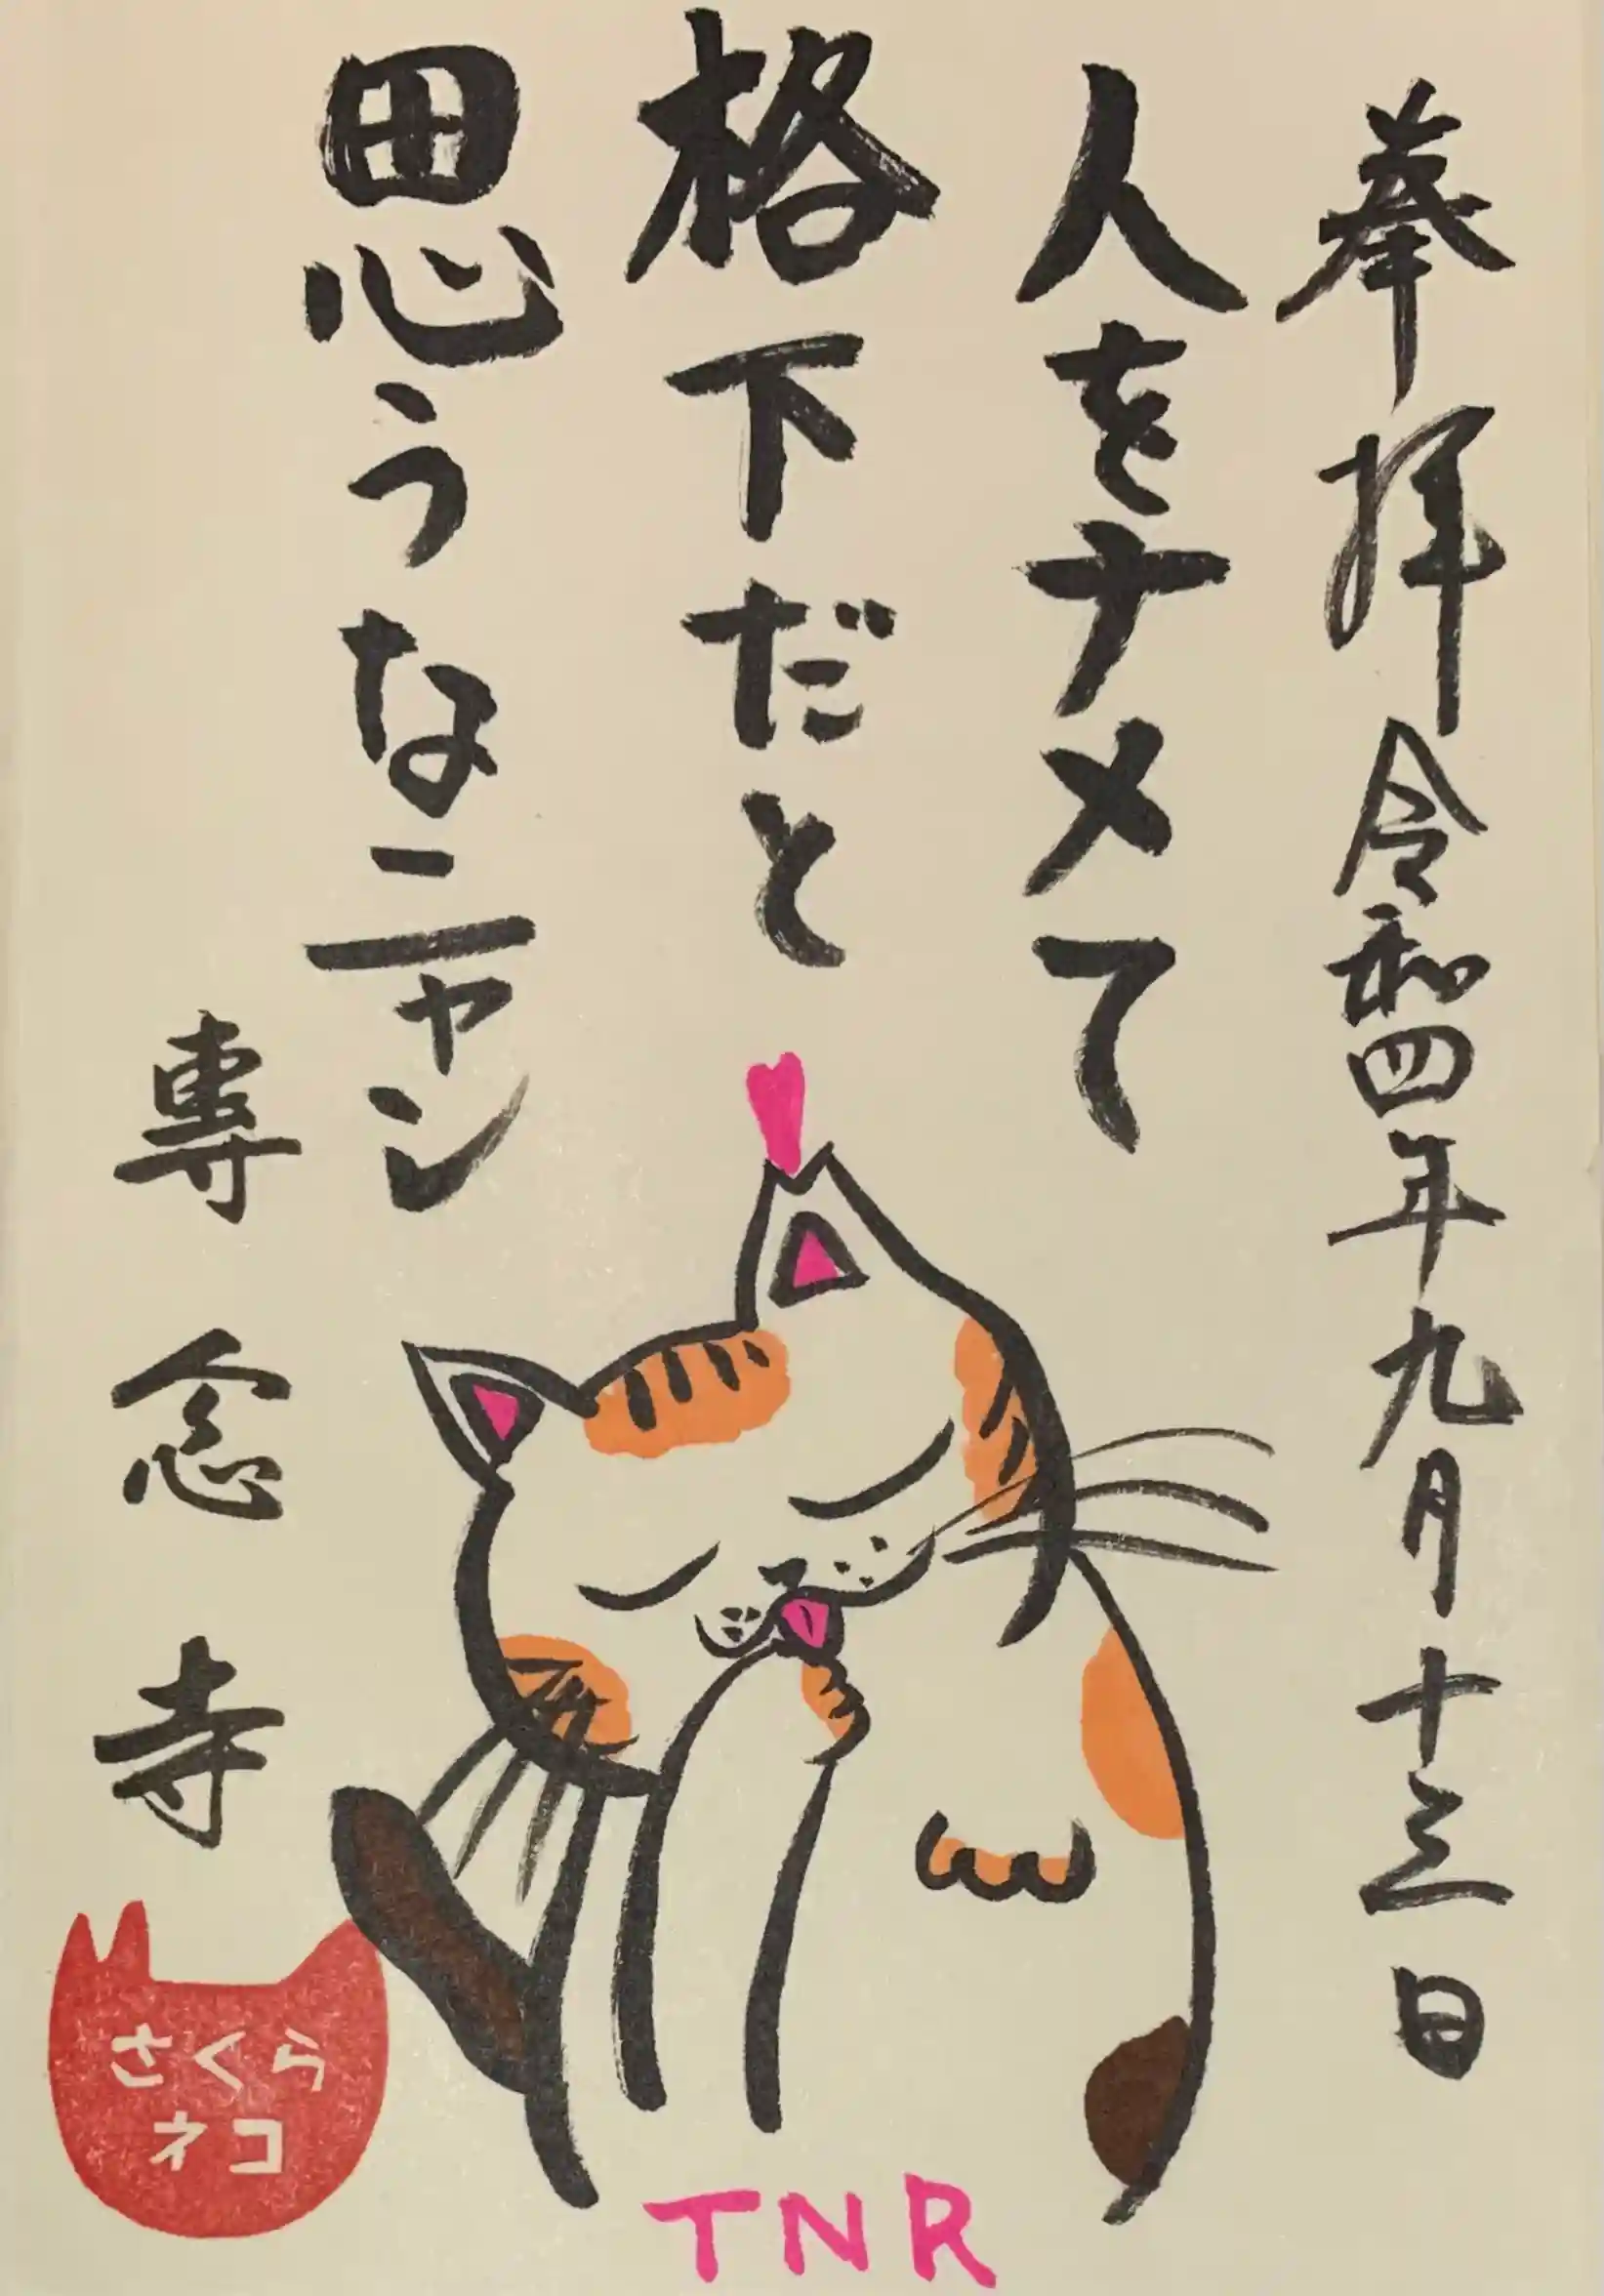 奉拝 令和四年九月十三日
人をナメて
格下だと
思うなニャン
専念寺
さくら
ネコ
TNR